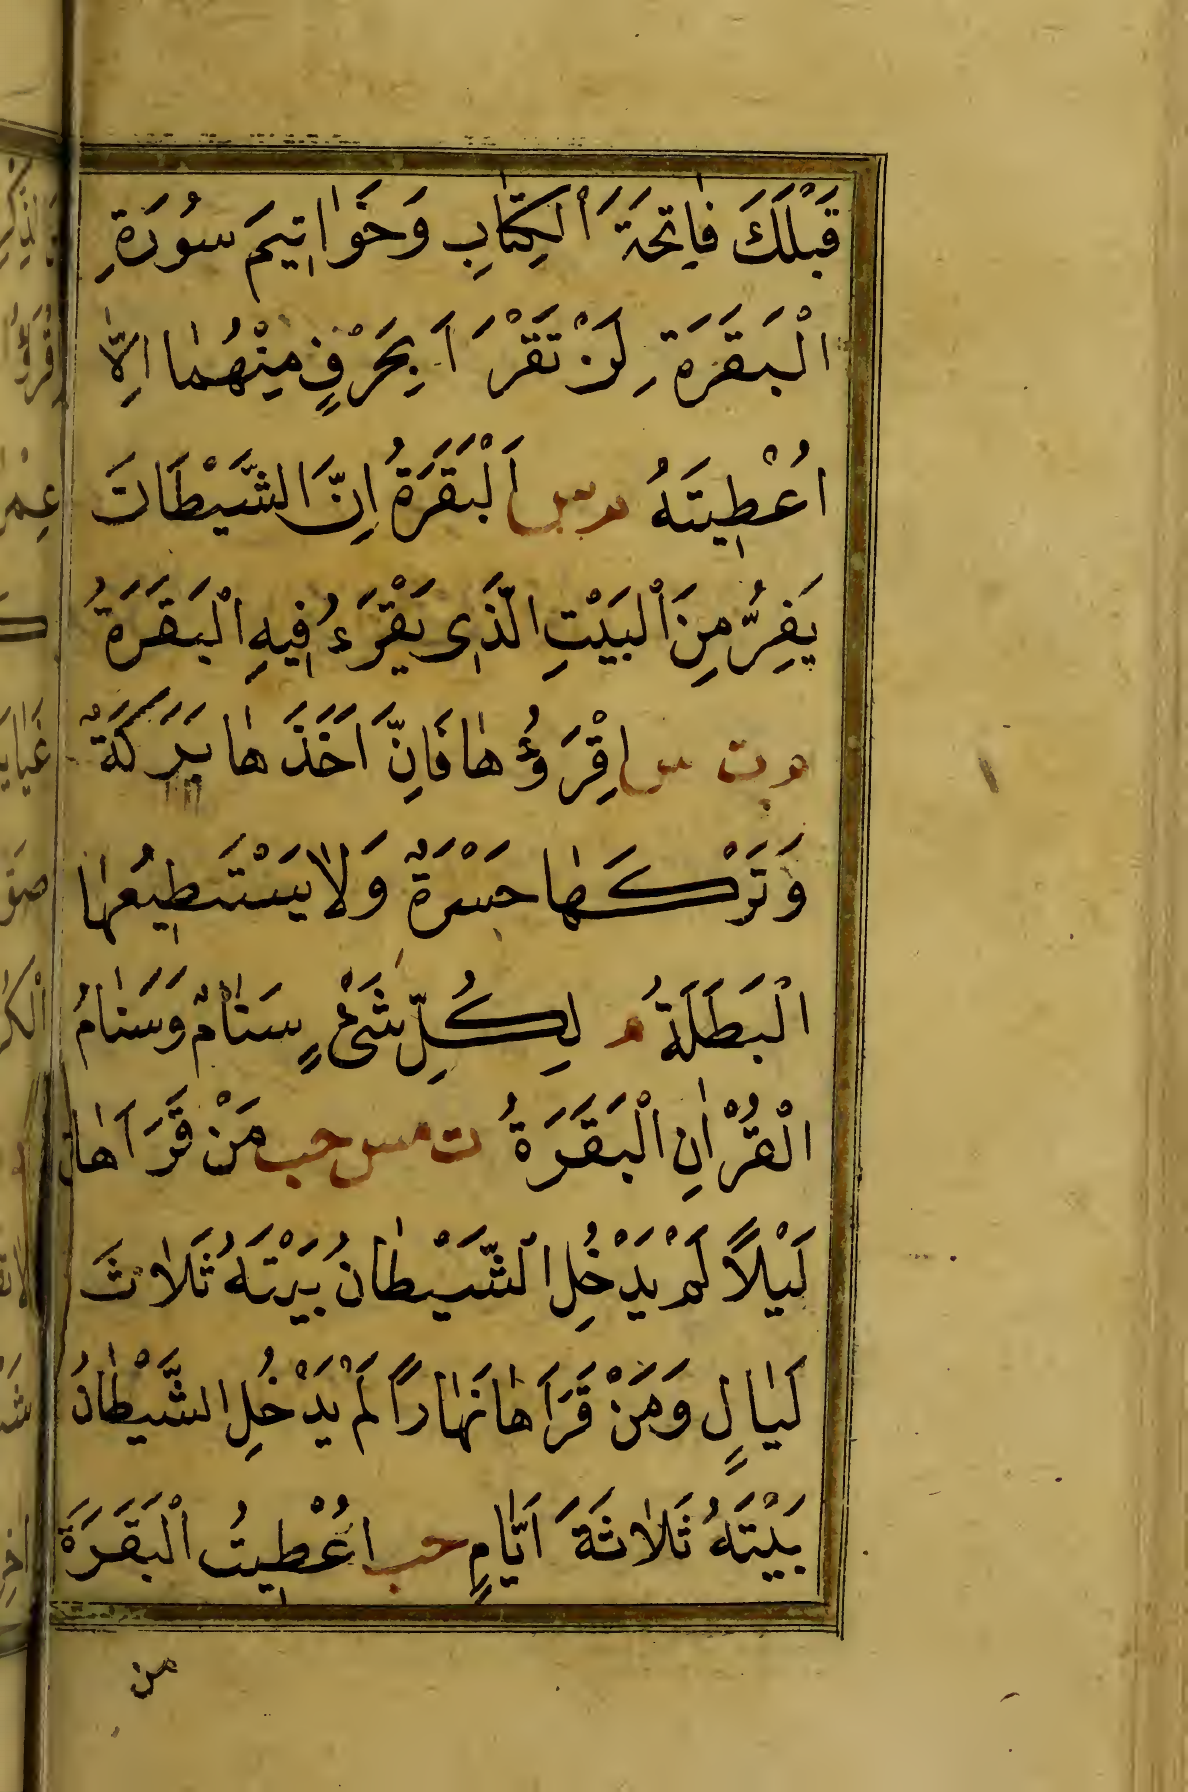 قَبْلَكَ فَاتِحَةَ الْكِتَابِ وَخَوَاتِيمَ سُورَةِ
الْبَقَرَةِ لَنْ تَقْرَاَ بِحَرْفٍ مِنْهُمَا اِلَّا
اُعْطِيتَهُ م س اَلْبَقَرَةُ اِنَّ الشَّيْطَانَ
يَفِرُّ مِنَ الْبَيْتِ الَّذِى يَقْرَءُ فِيهِ الْبَقَرَةُ
م ت س اِقْرَؤُهَا فَاِنَّ اَخْذَهَا بَرَكَةٌ
وَتَرْكَهَا حَسْرَةٌ وَلَا يَسْتَطِيعُهَا
الْبَطَلَةُ م لِكُلِّ شَىْءٍ سَنَامٌ وَسَنَامُ
الْقُرْاٰنِ الْبَقَرَةُ ت مس حب مَنْ قَرَاَهَا
لَيْلًا لَمْ يَدْخُلِ الشَّيْطَانُ بَيْتَهُ ثَلَاثَ
لَيَالٍ وَمَنْ قَرَاَهَا نَهَارًا لَمْ يَدْخُلِ الشَّيْطَانُ
بَيْتَهُ ثَلَاثَةَ اَيَّامٍ حب اُعْطِيتُ الْبَقَرَةَ
من